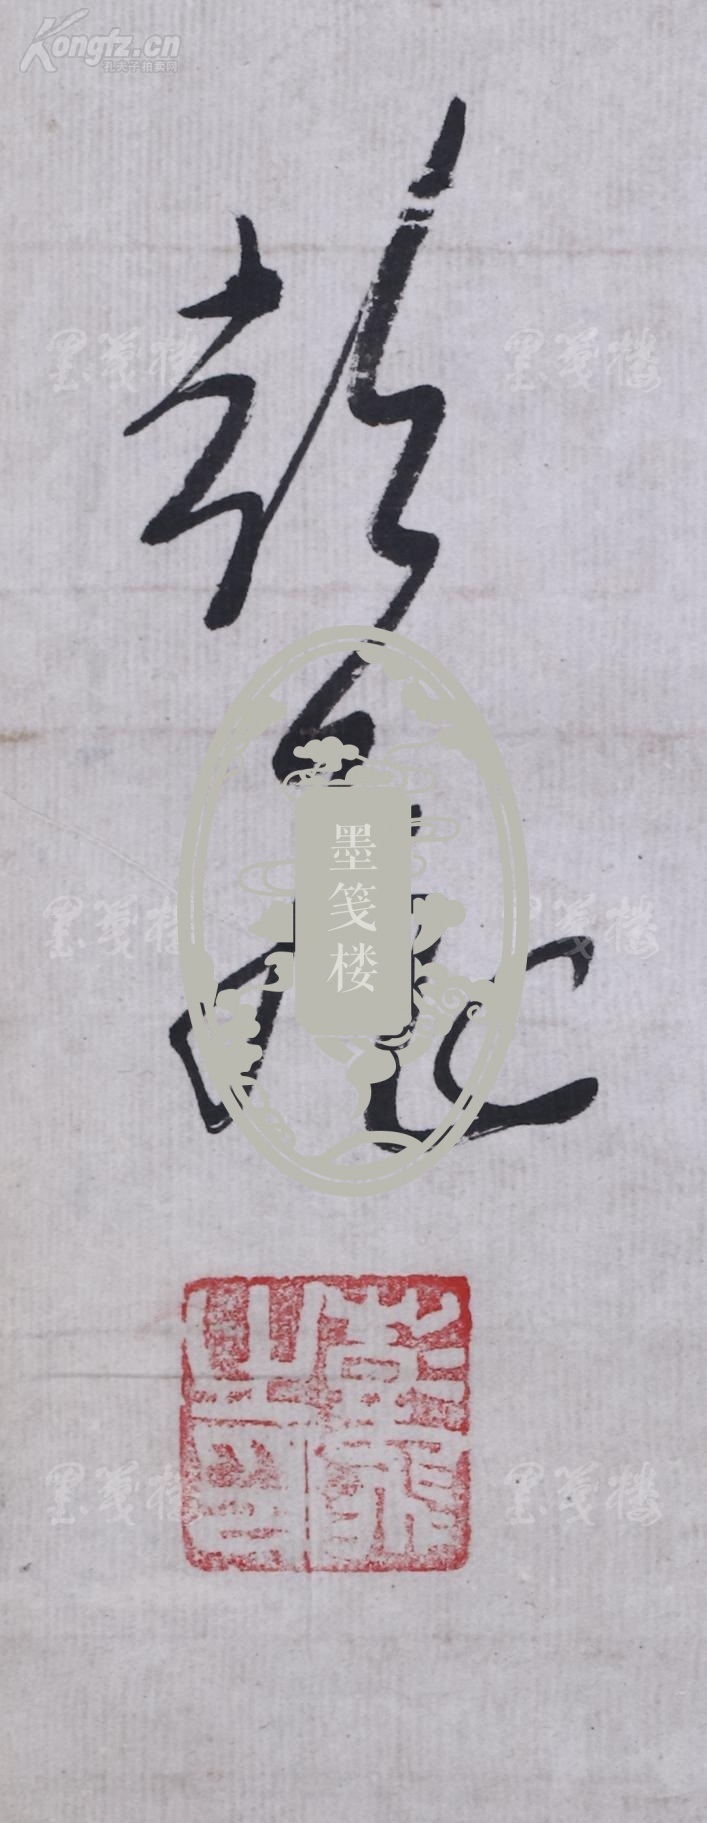 Kongfz.cn
孔夫子拍卖网
彭
墨笺楼
墨笺楼
墨笺楼
墨笺楼
墨笺楼
墨笺楼
墨笺楼
彭
之印